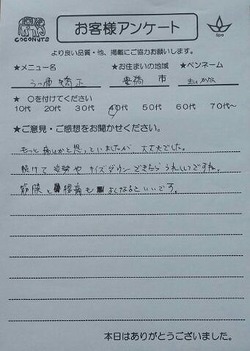 COCONUTS
お客様アンケート
より良い品質・他、掲載にご協力お願いします。
★メニュー名 ★お住まいの地域 ★ペンネーム
矯正 豊橋 市
★ ○を付けてください
10代 20代 30代 40代 50代 60代 70代〜
★ご意見・ご感想をお聞かせください。
もっと痛いかと思っていましたが 大丈夫でした。
続けて 姿勢や サイズダウン できたら うれしいですね。
腰痛も よくなるといいです。
本日はありがとうございました。